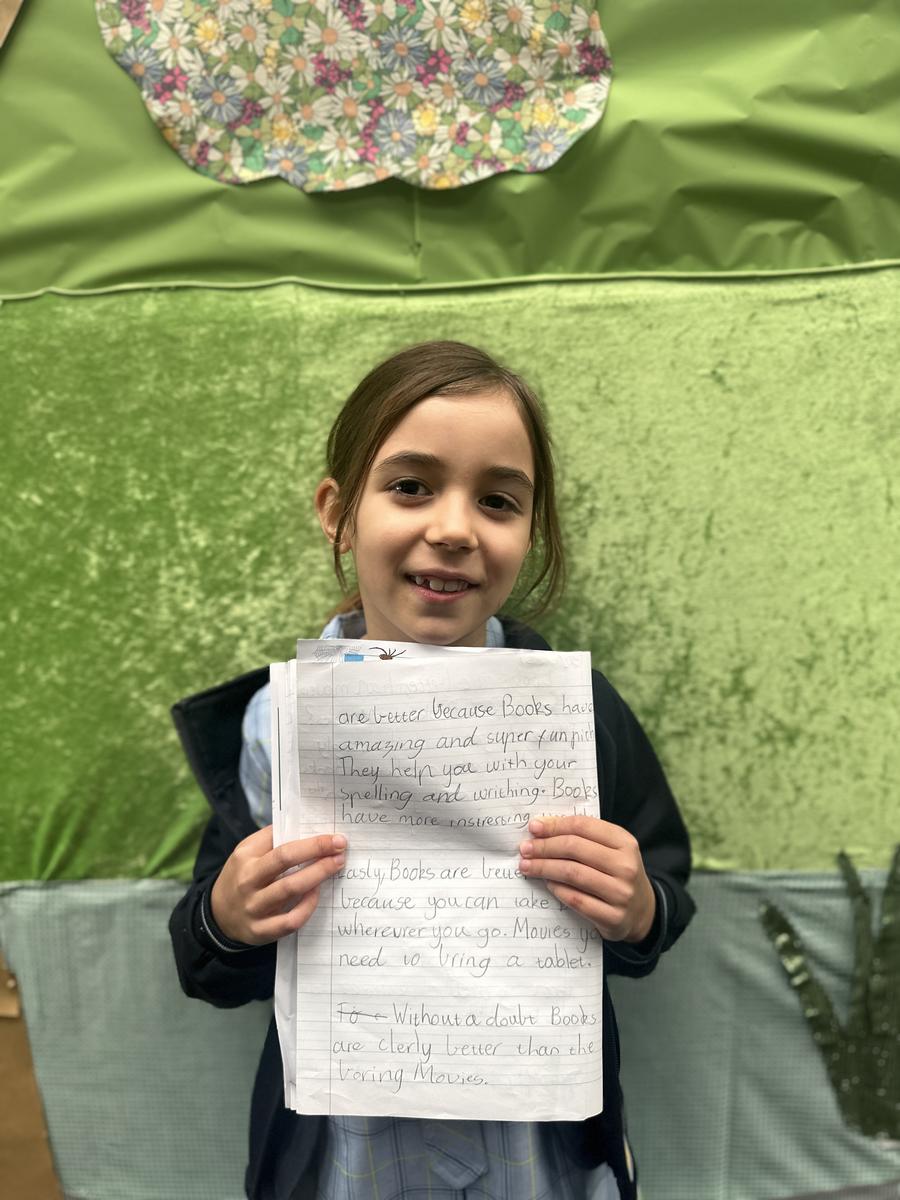 are better because Books have
amazing and super fun
They help you with your
spelling and writhing. Books
have more instresting
Lasly, Books are
because you can take
wherever you go. Movies
need to bring a tablet.
Fo Without a doubt Books
are clerly better than the
boring Movies.